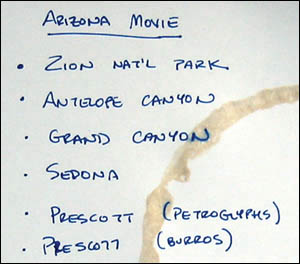 ARIZONA MOVIE
• ZION NAT'L PARK
• ANTELOPE CANYON
• GRAND CANYON
• SEDONA
• PRESCOTT (PETROGLYPHS)
• PRESCOTT (BURROS)